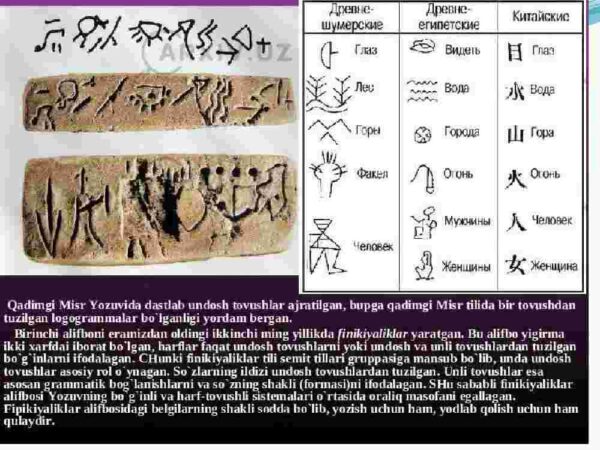 ARXIV.UZ
Древне-шумерские
Древне-египетские
Китайские
Глаз
Видеть
目 Глаз
Лес
Вода
水 Вода
Горы
Города
山 Гора
Факел
Огонь
火 Огонь
Человек
Мужчины
人 Человек
Женщины
女 Женщина
Qadimgi Misr Yozuvida dastlab undosh tovushlar ajratilgan, bupga qadimgi Misr tilida bir tovushdan
tuzilgan logogrammalar bo`lganligi yordam bergan.
Birinchi alifboni eramizdan oldingi ikkinchi ming yillikda finikiyaliklar yaratgan. Bu alifbo yigirma
ikki xarfdai iborat bo`lgan, harflar faqat undosh tovushlarni yoki undosh va unli tovushlardan tuzilgan
bo`g`inlarni ifodalagan. CHunki finikiyaliklar tili semit tillari gruppasiga mansub bo`lib, unda undosh
tovushlar asosiy rol o`ynagan. So`zlarning ildizi undosh tovushlardan tuzilgan. Unli tovushlar esa
asosan grammatik bog`lanishlarni va so`zning shakli (formasi)ni ifodalagan. SHu sababli finikiyaliklar
alifbosi Yozuvning bo`g`inli va harf-tovushli sistemalari o`rtasida oraliq masofani egallagan.
Fipikiyaliklar alifbosidagi belgilarning shakli sodda bo`lib, yozish uchun ham, yodlab qolish uchun ham
qulaydir.